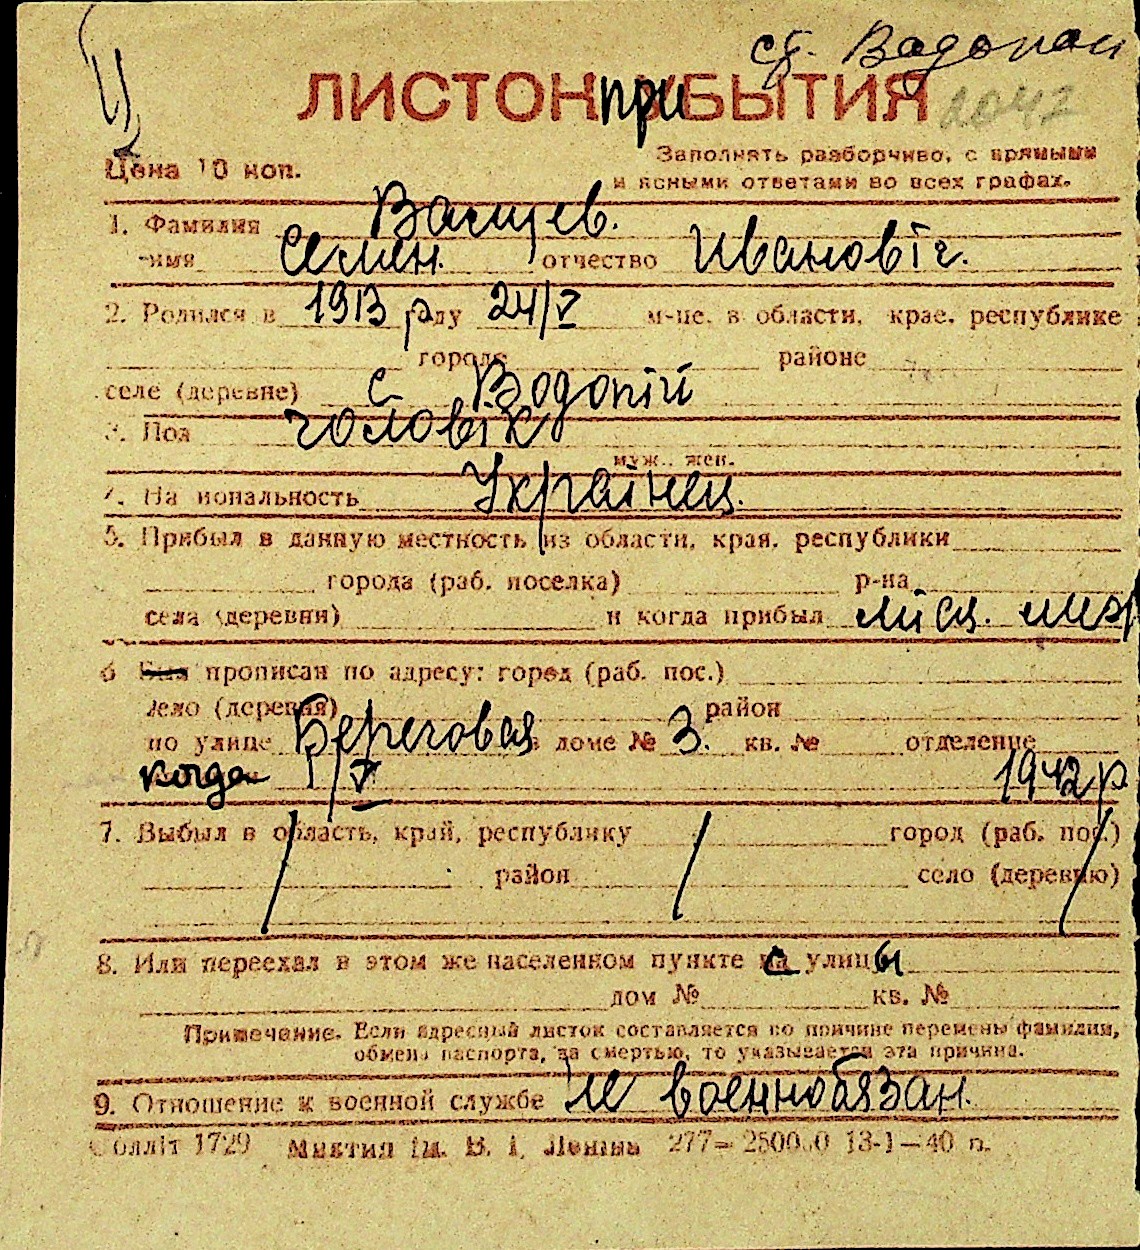 ст. Водопой
ЛИСТОК приБЫТИЯ
2042
Цена 10 коп.
Заполнять разборчиво, с прямыми
и ясными ответами во всех графах.
1. Фамилия
имя Семен. отчество Іванович.
2. Родился в 1913 році 24/V м-це, в области, крае, республике
городе районе
селе (деревне) с. Водопій
3. Пол чоловік
муж., жен.
4. Национальность Українец.
5. Прибыл в данную местность из области, края, республики
города (раб. поселка) р-на
села (деревни) и когда прибыл місц. жит
6 Был прописан по адресу: город (раб. пос.)
село (деревня) район
по улице Береговая в доме № 3. кв. № отделение
когда 1/V 1942 р
7. Выбыл в область, край, республику город (раб. пос.)
район село (деревню)
8. Или переехал в этом же населенном пункте с улицы
дом № кв. №
Примечание. Если адресный листок составляется по причине перемены фамилии,
обмена паспорта, за смертью, то указывается эта причина.
9. Отношение к военной службе не военнобязан.
Обллiт 1729 ім. В. І. Леніна 277— 13-1—40 п.